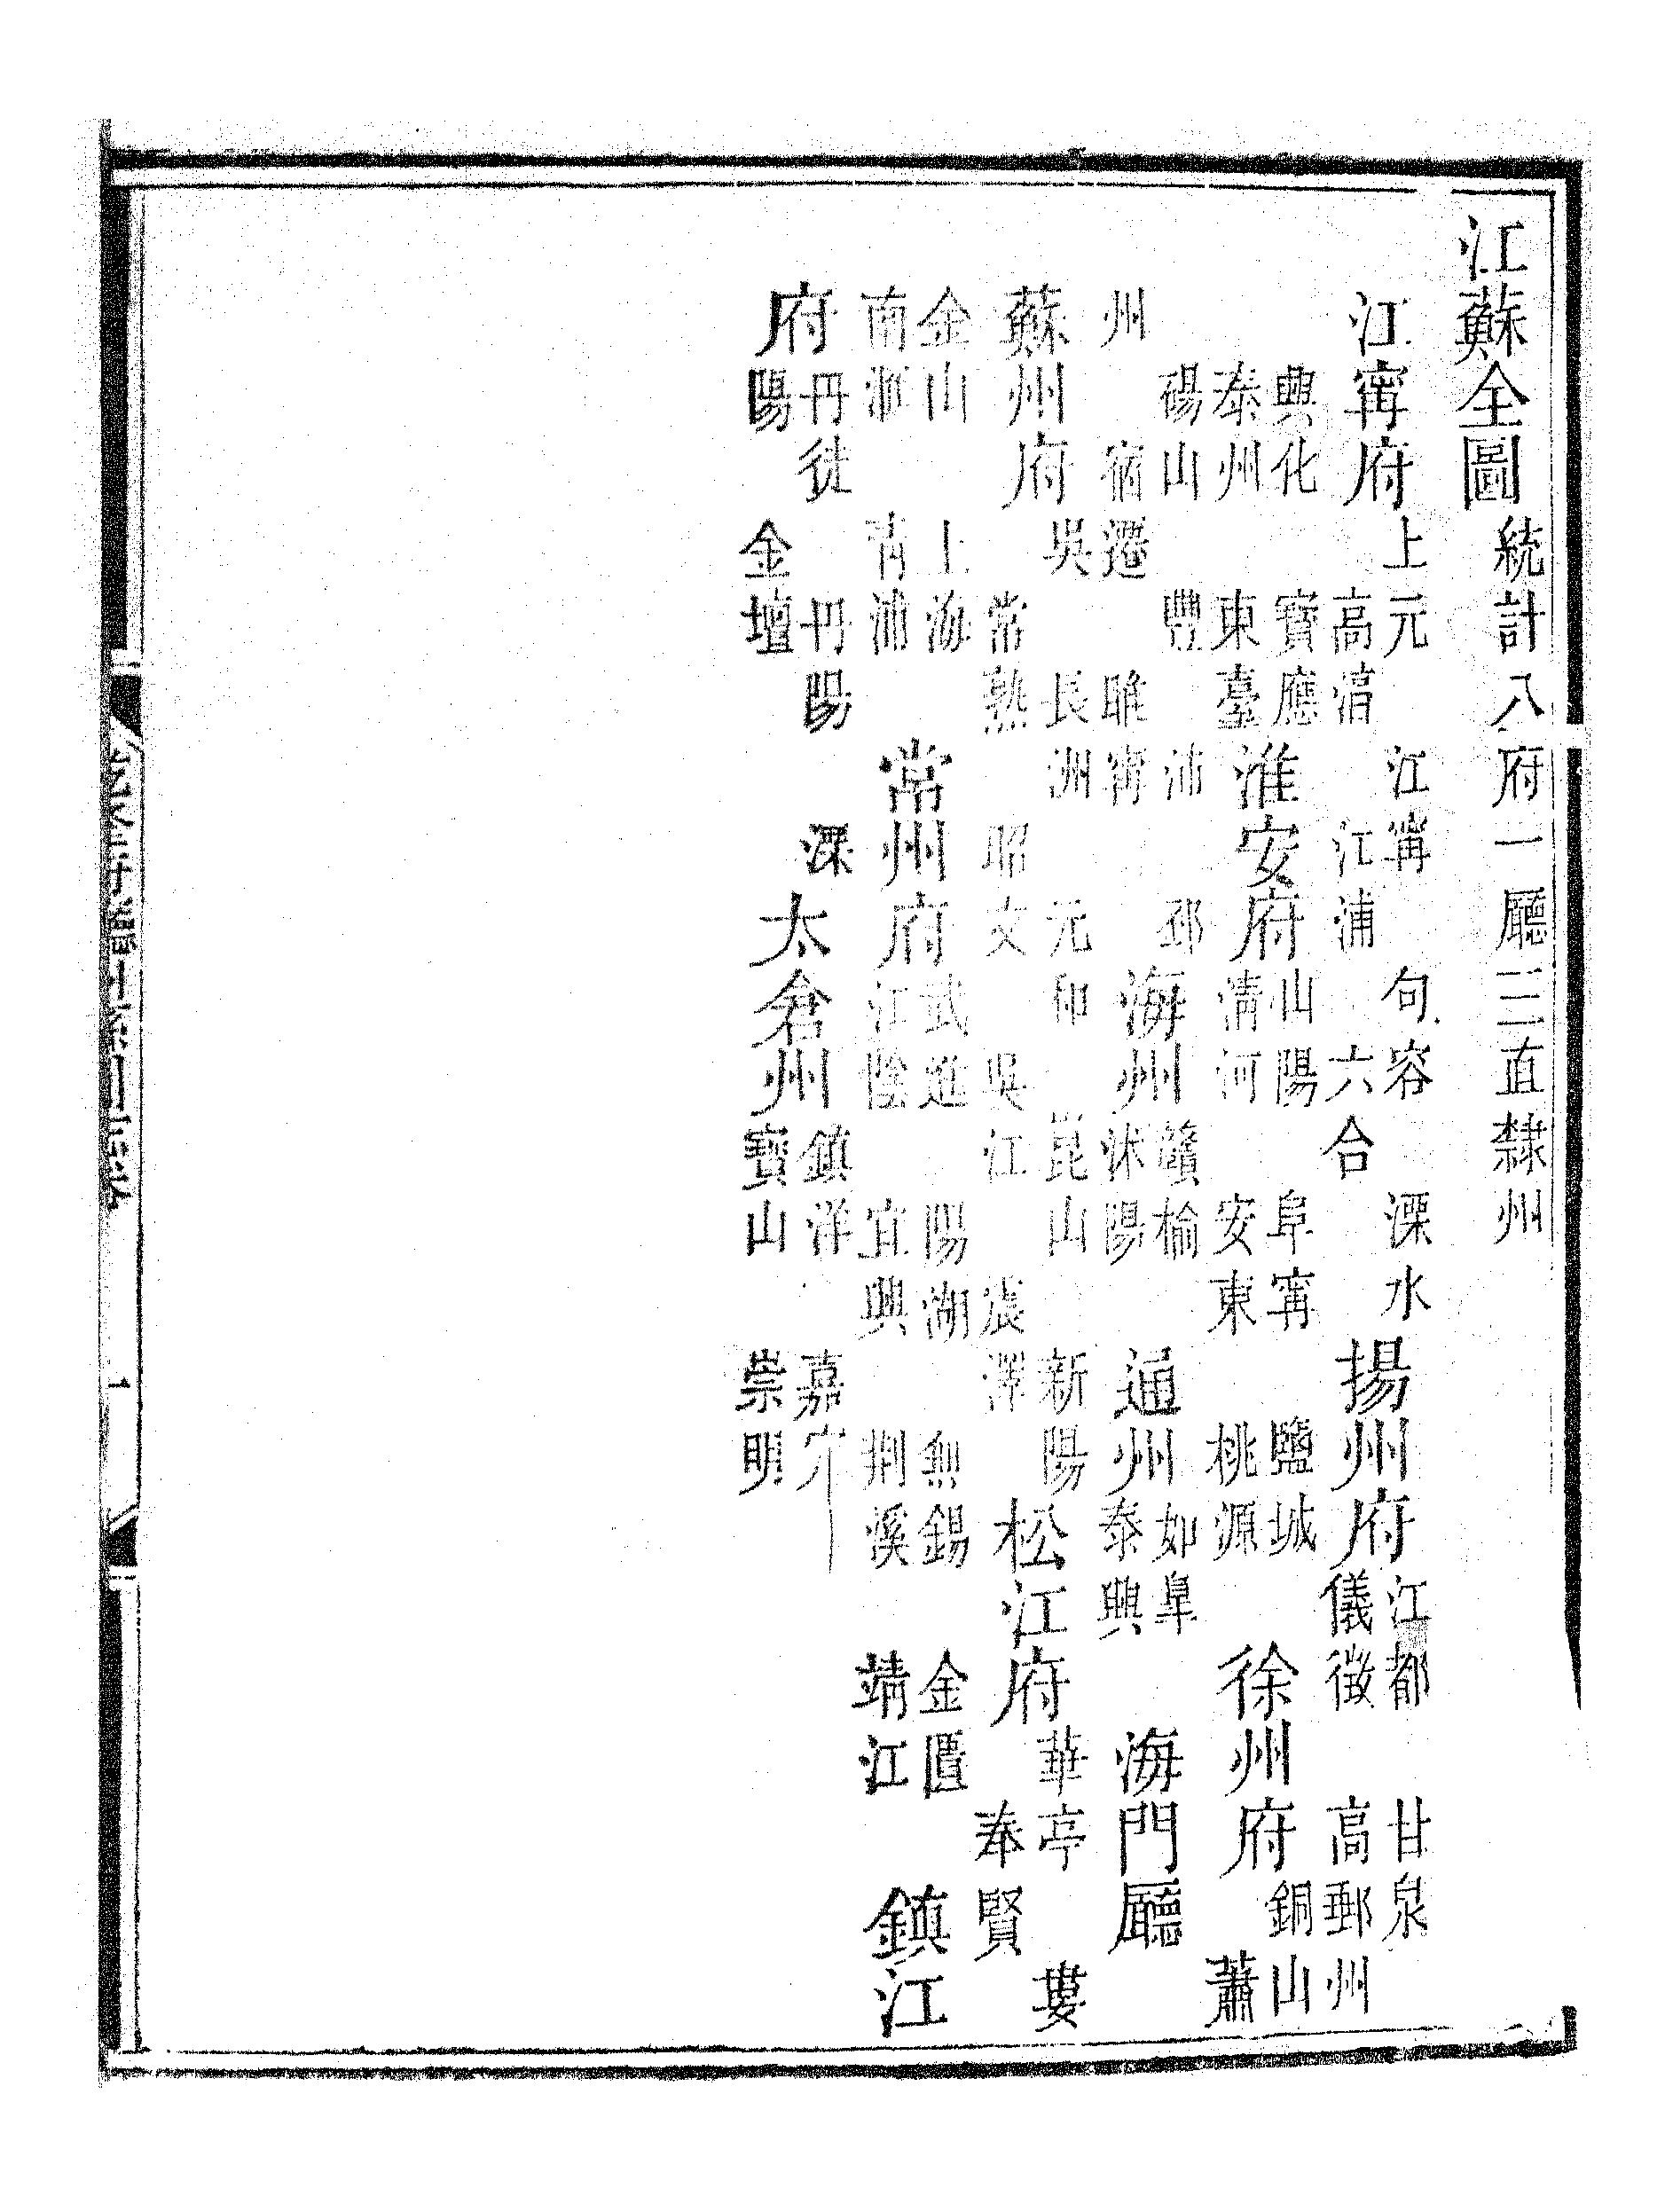 江蘇全圖 統計八府一廳三直隸州
江甯府 上元 江甯 句容 溧水 高淳 江浦 六合 揚州府 江都 甘泉 儀徵 高郵州
興化 寶應 泰州 東臺 淮安府 山陽 阜甯 鹽城 清河 安東 桃源 徐州府 銅山 蕭
碭山 豐 沛 邳 州 宿遷 睢甯 海州 贛榆 沭陽 通州 如皋 泰興 海門廳
蘇州府 吳 長洲 元和 崑山 新陽 常熟 昭文 吳江 震澤 松江府 華亭 婁 奉賢
金山 上海 南滙 青浦 常州府 武進 陽湖 無錫 金匱 江陰 宜興 荆溪 靖江 鎮江
府 丹徒 丹陽 溧 陽 金壇 太倉州 鎮洋 嘉定 寶山 崇明